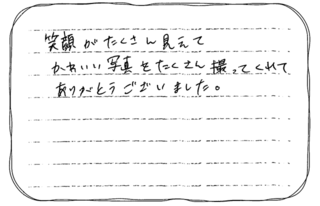 笑顔がたくさん見えて
かわいい写真をたくさん撮ってくれて
ありがとうございました。